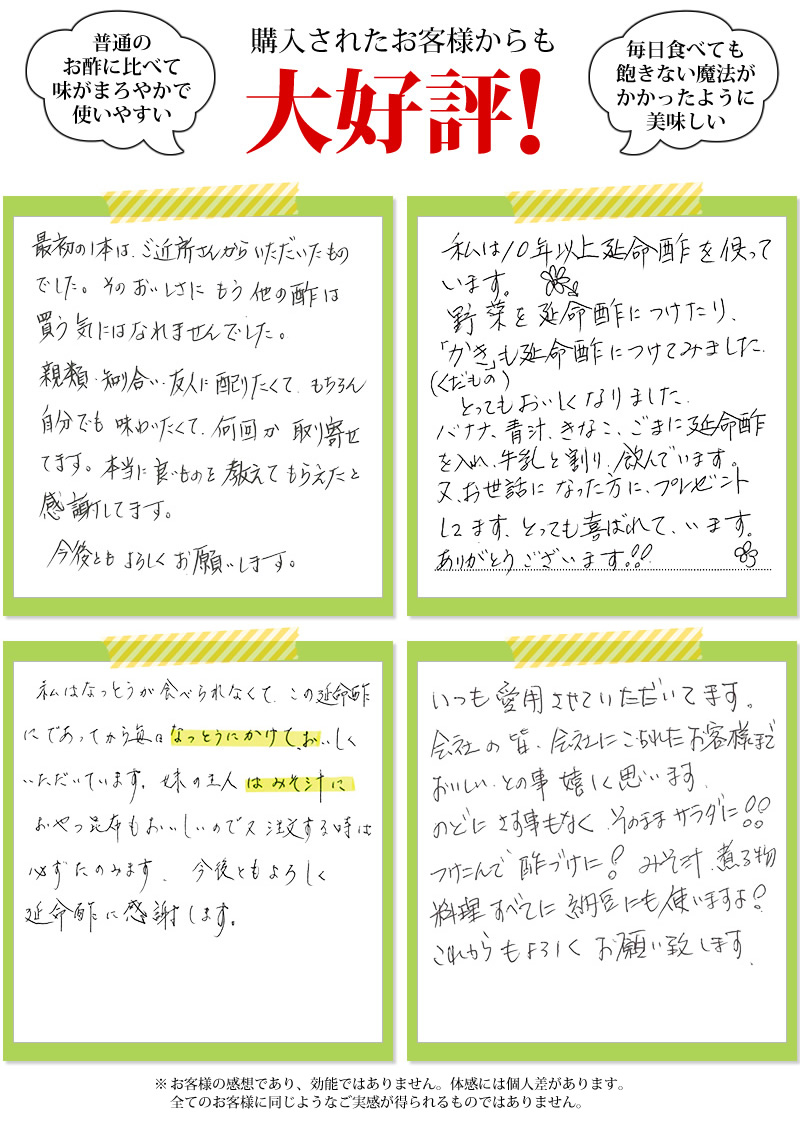 普通の
お酢に比べて
味がまろやかで
使いやすい
購入されたお客様からも
大好評!
毎日食べても
飽きない魔法が
かかったように
美味しい
最初の1本は、ご近所さんからいただいたもの
でした。そのおいしさに もう他の酢は
買う気にはなれませんでした。
親類・知り合い・友人に配りたくて、もちろん
自分でも 味わいたくて、何回か 取り寄せ
てます。本当に良いものを教えてもらえたと
感謝してます。
今後ともよろしくお願いします。
私は10年以上延命酢を使って
います。
野菜を延命酢につけたり、
「かき」も延命酢につけてみました。
(くだもの)
とってもおいしくなりました。
バナナ、青汁、きなこ、ごまに延命酢
を入れ、牛乳と割り、飲んでいます。
又、お世話になった方に、プレゼント
してます、とっても喜ばれて、います。
ありがとうございます!!
私はなっとうが食べられなくて、この延命酢
にであってから毎日なっとうにかけて、おいしく
いただいています。妹の主人はみそ汁に
おやつ昆布もおいしいのでス 注文する時は
必ずたのみます。今後ともよろしく
延命酢に感謝します。
いつも愛用させていただいてます。
会社の皆、会社にこられたお客様まで
おいしいとの事 嬉しく思います。
のどにさす事もなく、そのままサラダに!!
つけこんで 酢づけに! みそ汁、煮る物
料理すべてに 納豆にも使いますよ!
これからもよろしくお願い致します。
※お客様の感想であり、効能ではありません。体感には個人差があります。
全てのお客様に同じようなご実感が得られるものではありません。